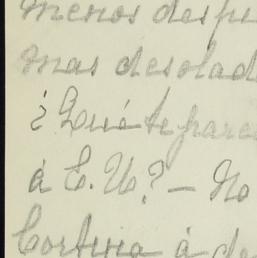 menos
mas desolad
¿Qué te parec
á E. U.? - No
Cortina á de